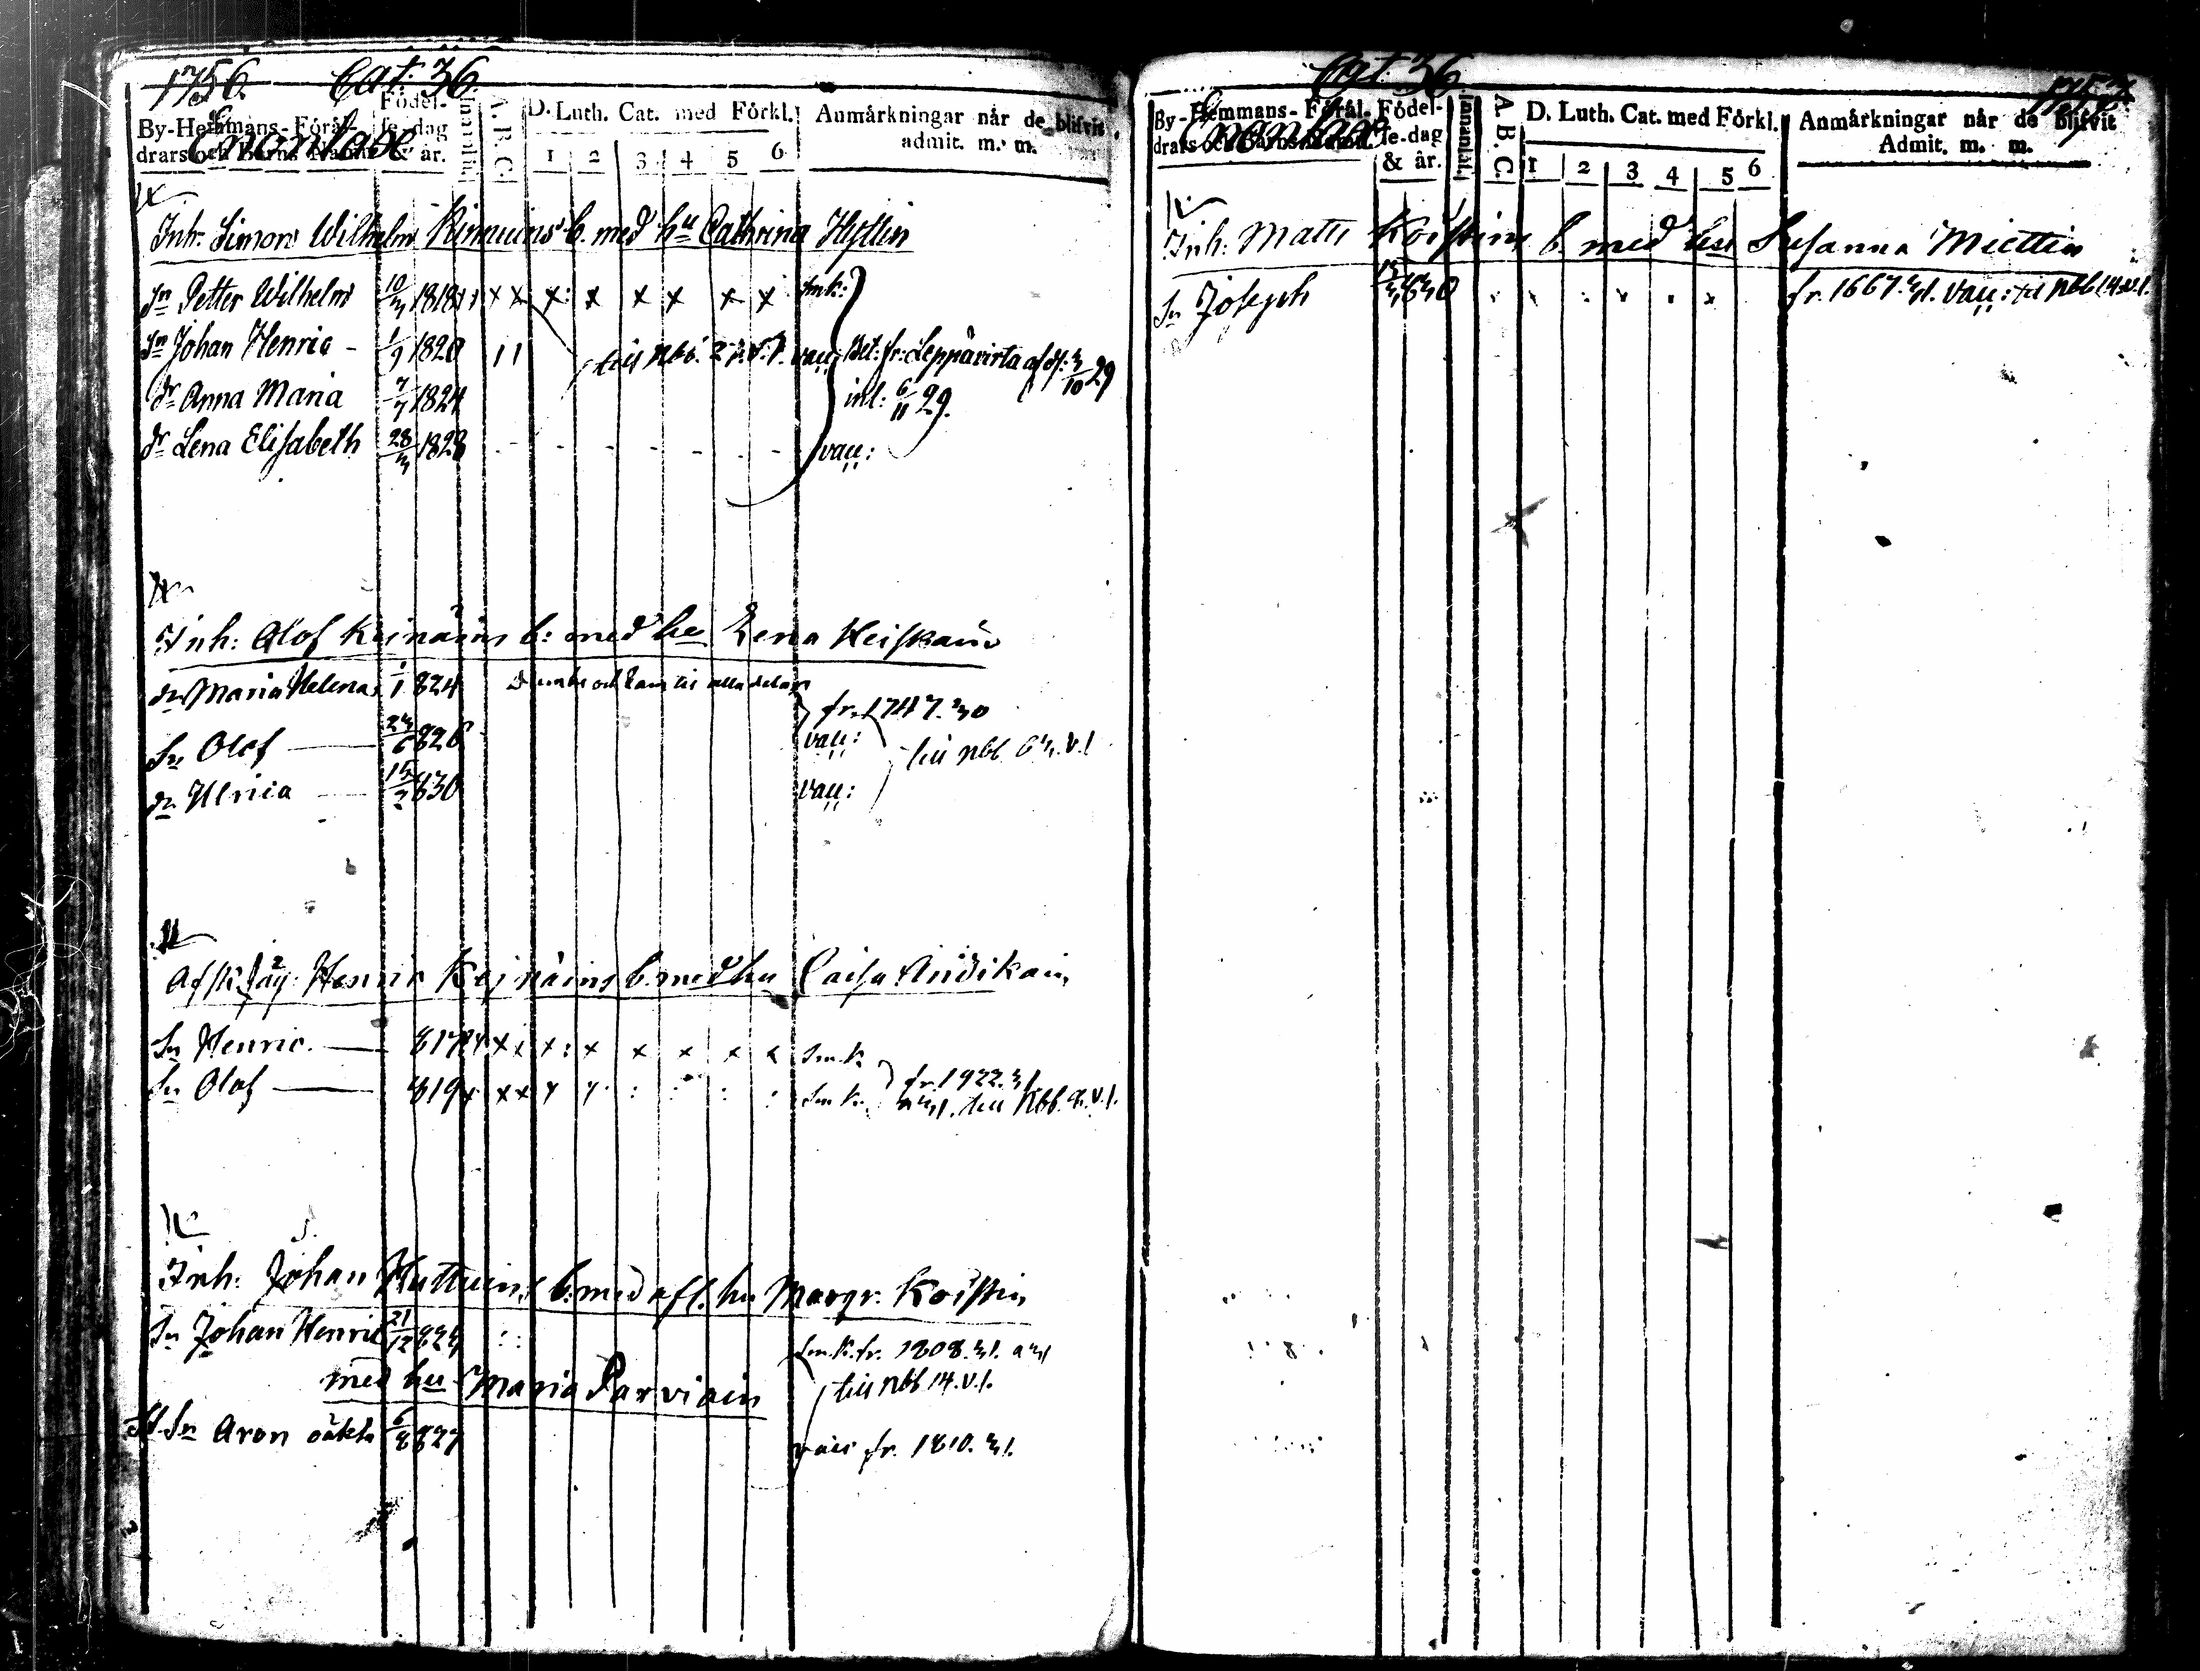 1756. Cat: 36.
Enonlax
By-Hemmans-Föräl-
drars och Barns Namn
Födel-
se-dag
& år.
Innanläsn.
A. B. C.
D. Luth. Cat. med Förkl.
1 2 3 4 5 6
Anmårkningar når de blifvit
admit. m. m.
Inh: Simon Wilhelm Kinnuins b. med hu Cathrina Hyttin
Sn Petter Wilhelm 10/3 1818 x x x x x x x x smk:
Sn Johan Henric - 1/9 1820 11 till Nbb. 27. v.l. vacc: Bet: fr: Leppävirta af d: 3/10 29
dr Anna Maria 7/7 1824 inl: 6/11 29.
dr Lena Elisabeth 28/3 1828 - - - - - - - vacc:
Inh: Olof Keinäins b: med hu Lena Heiskain
dr Maria Helena 1/1 824
fr. 1747. 30
Sn Olof 23/6 826 vacc: till Nbb 63. v.l
dr Ulrica 15/2 830 vacc:
Afsk. Jäg: Henric Keinäins b. med hu Caisa
Sn Henric 817 x x x : x x x x x Sm.k.
Sn Olof 819 x x x : : : : Sm.k. fr. 1922. 31.
till Nbb. v.l.
Inh: Johan Huttuins b: med afl. hu Margr. Koistin
Sn Johan Henric 21/12 823 : : Sm.k. fr. 1808. 31.
till Nbb 14. v.l.
med hu Maria Parviain
Sn Aron oäkta 6/8 827 vacc fr. 1810. 31.
Cat: 36
Enonlax
By-Hemmans-Förål-
drars och Barns Namn
Födel-
se-dag
& år.
Innanläsn.
A. B. C.
D. Luth. Cat. med Förkl.
1 2 3 4 5 6
Anmårkningar når de blifvit
Admit. m. m.
Inh: Matts Koistins b. med hu Susanna Miettin
Sn Joseph 830 fr. 1667. 31. vacc: til Nbb 14. v.l.